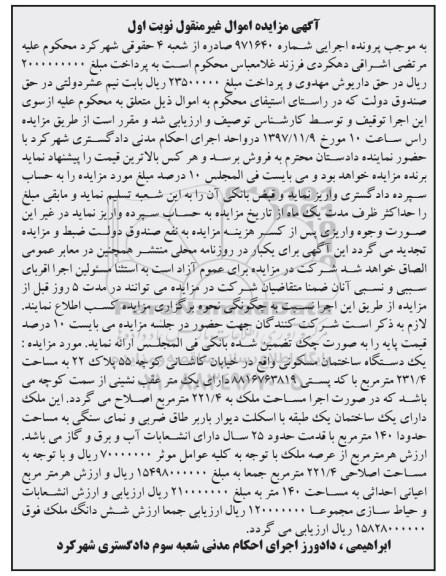 آگهی مزایده اموال غیرمنقول نوبت اول
به موجب پرونده اجرایی شماره ۹۷۱۶۴۰ صادره از شعبه ۴ حقوقی شهرکرد محکوم علیه
مرتضی اشراقی دهکردی فرزند غلامعباس محکوم است به پرداخت مبلغ ۲۰۰۰۰۰۰۰۰۰
ریال در حق داریوش مهدوی و پرداخت مبلغ ۲۳۵۰۰۰۰۰ ریال بابت نیم عشر دولتی در حق
صندوق دولت که در راستای استیفای محکوم به اموال ذیل متعلق به محکوم علیه ازسوی
این اجرا توقیف و توسط کارشناس توصیف و ارزیابی شد و مقرر است از طریق مزایده
راس ساعت ۱۰ مورخ ۱۳۹۷/۱۱/۹ درواحد اجرای احکام مدنی دادگستری شهرکرد با
حضور نماینده دادستان محترم به فروش برسد و هر کس بالاترین قیمت را پیشنهاد نماید
برنده مزایده خواهد بود و می بایست فی المجلس ۱۰ درصد مبلغ مورد مزایده را به حساب
سپرده دادگستری واریز نماید و قبض بانکی آن را به این شعبه تسلیم نماید و مابقی مبلغ
را حداکثر ظرف مدت یک ماه از تاریخ مزایده به حساب سپرده واریز نماید در غیر این
صورت وجوه واریزی پس از کسر هزینه مزایده به نفع صندوق دولت ضبط و مزایده
تجدید می گردد این آگهی برای یکبار در روزنامه محلی منتشر همچنین در معابر عمومی
الصاق خواهد شد شرکت در مزایده برای عموم آزاد است به استثنا مسئولین اجرا اقربای
سببی و نسبی آنان ضمنا متقاضیان شرکت در مزایده می توانند در مدت ۵ روز قبل از
مزایده از طریق این اجرا نسبت به چگونگی نحوه برگزاری مزایده کسب اطلاع نمایند.
لازم به ذکر است شرکت کنندگان جهت حضور در جلسه مزایده می بایست ۱۰ درصد
قیمت پایه را به صورت چک تضمین شده بانکی فی المجلس ارائه نماید. مورد مزایده :
یک دستگاه ساختمان مسکونی واقع در خیابان کاشانی کوچه ۵۵ پلاک ۲۲ به مساحت
۲۳۱/۴ مترمربع با کد پستی ۸۸۱۶۷۶۳۸۱۹ دارای یک متر عقب نشینی از سمت کوچه می
باشد که در صورت اجرا مساحت ملک به ۲۲۱/۴ مترمربع اصلاح می گردد. این ملک
دارای یک ساختمان یک طبقه با اسکلت دیوار باربر طاق ضربی و نمای سنگی به مساحت
حدودا ۱۴۰ مترمربع با قدمت حدود ۲۵ سال دارای انشعابات آب و برق و گاز می باشد.
ارزش هرمترمربع از عرصه ملک با توجه به کلیه عوامل موثر ۷۰۰۰۰۰۰۰ ریال و با توجه به
مساحت اصلاحی ۲۲۱/۴ مترمربع جمعا به مبلغ ۱۵۴۹۸۰۰۰۰۰۰ ریال و ارزش هرمتر مربع
اعیانی احداثی به مساحت ۱۴۰ متر به مبلغ ۲۱۰۰۰۰۰۰۰ ریال ارزیابی و ارزش انشعابات
و حیاط سازی مجموعا ۱۲۰۰۰۰۰۰۰ ریال ارزیابی جمعا ارزش شش دانگ ملک فوق
۱۵۸۲۸۰۰۰۰۰۰ ریال ارزیابی می گردد.
ابراهیمی ، دادورز اجرای احکام مدنی شعبه سوم دادگستری شهرکرد